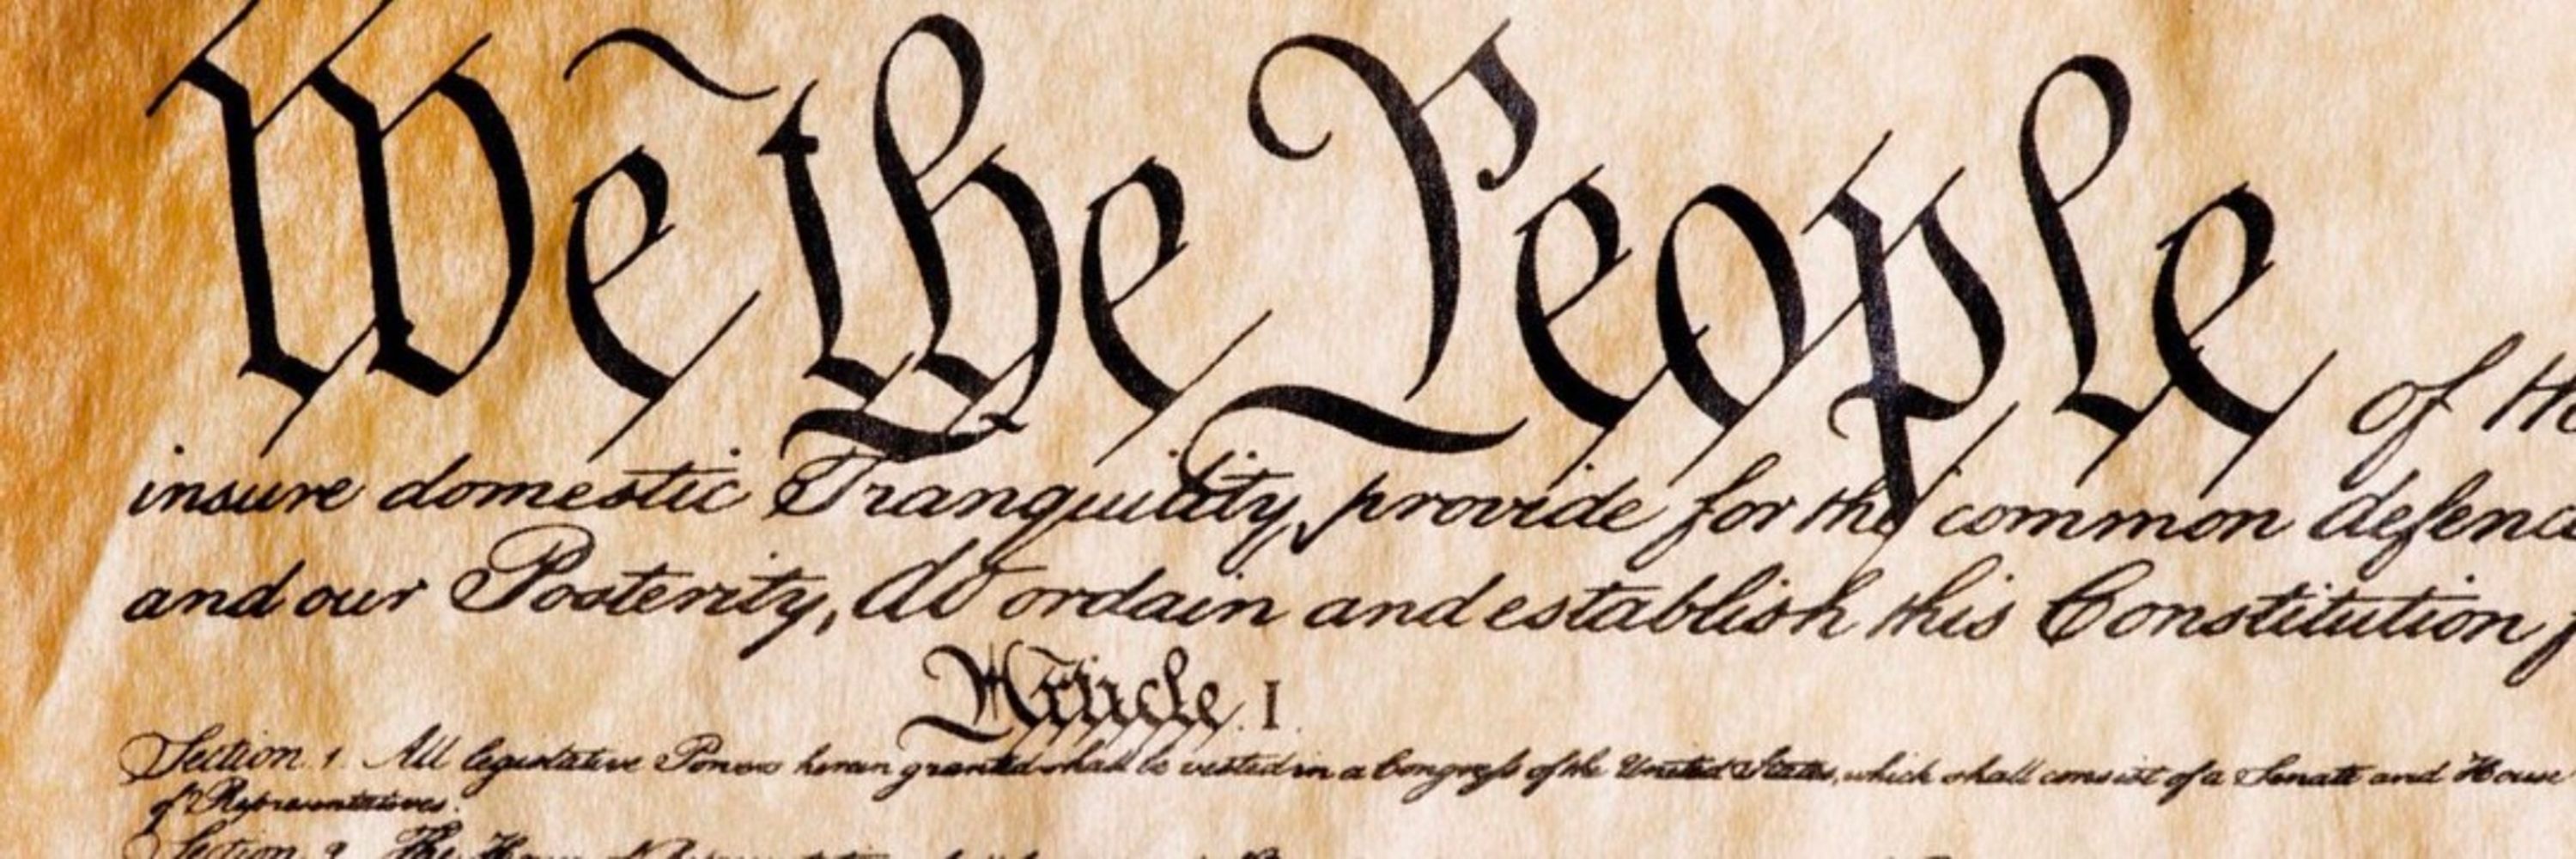 We the People of the
insure domestic Tranquility, provide for the common defenc
and our Posterity, do ordain and establish this Constitution f
Article. I.
Section. 1. All legislative Powers herein granted shall be vested in a Congress of the United States, which shall consist of a Senate and House
of Representatives.
Section. 2. The House of Representatives